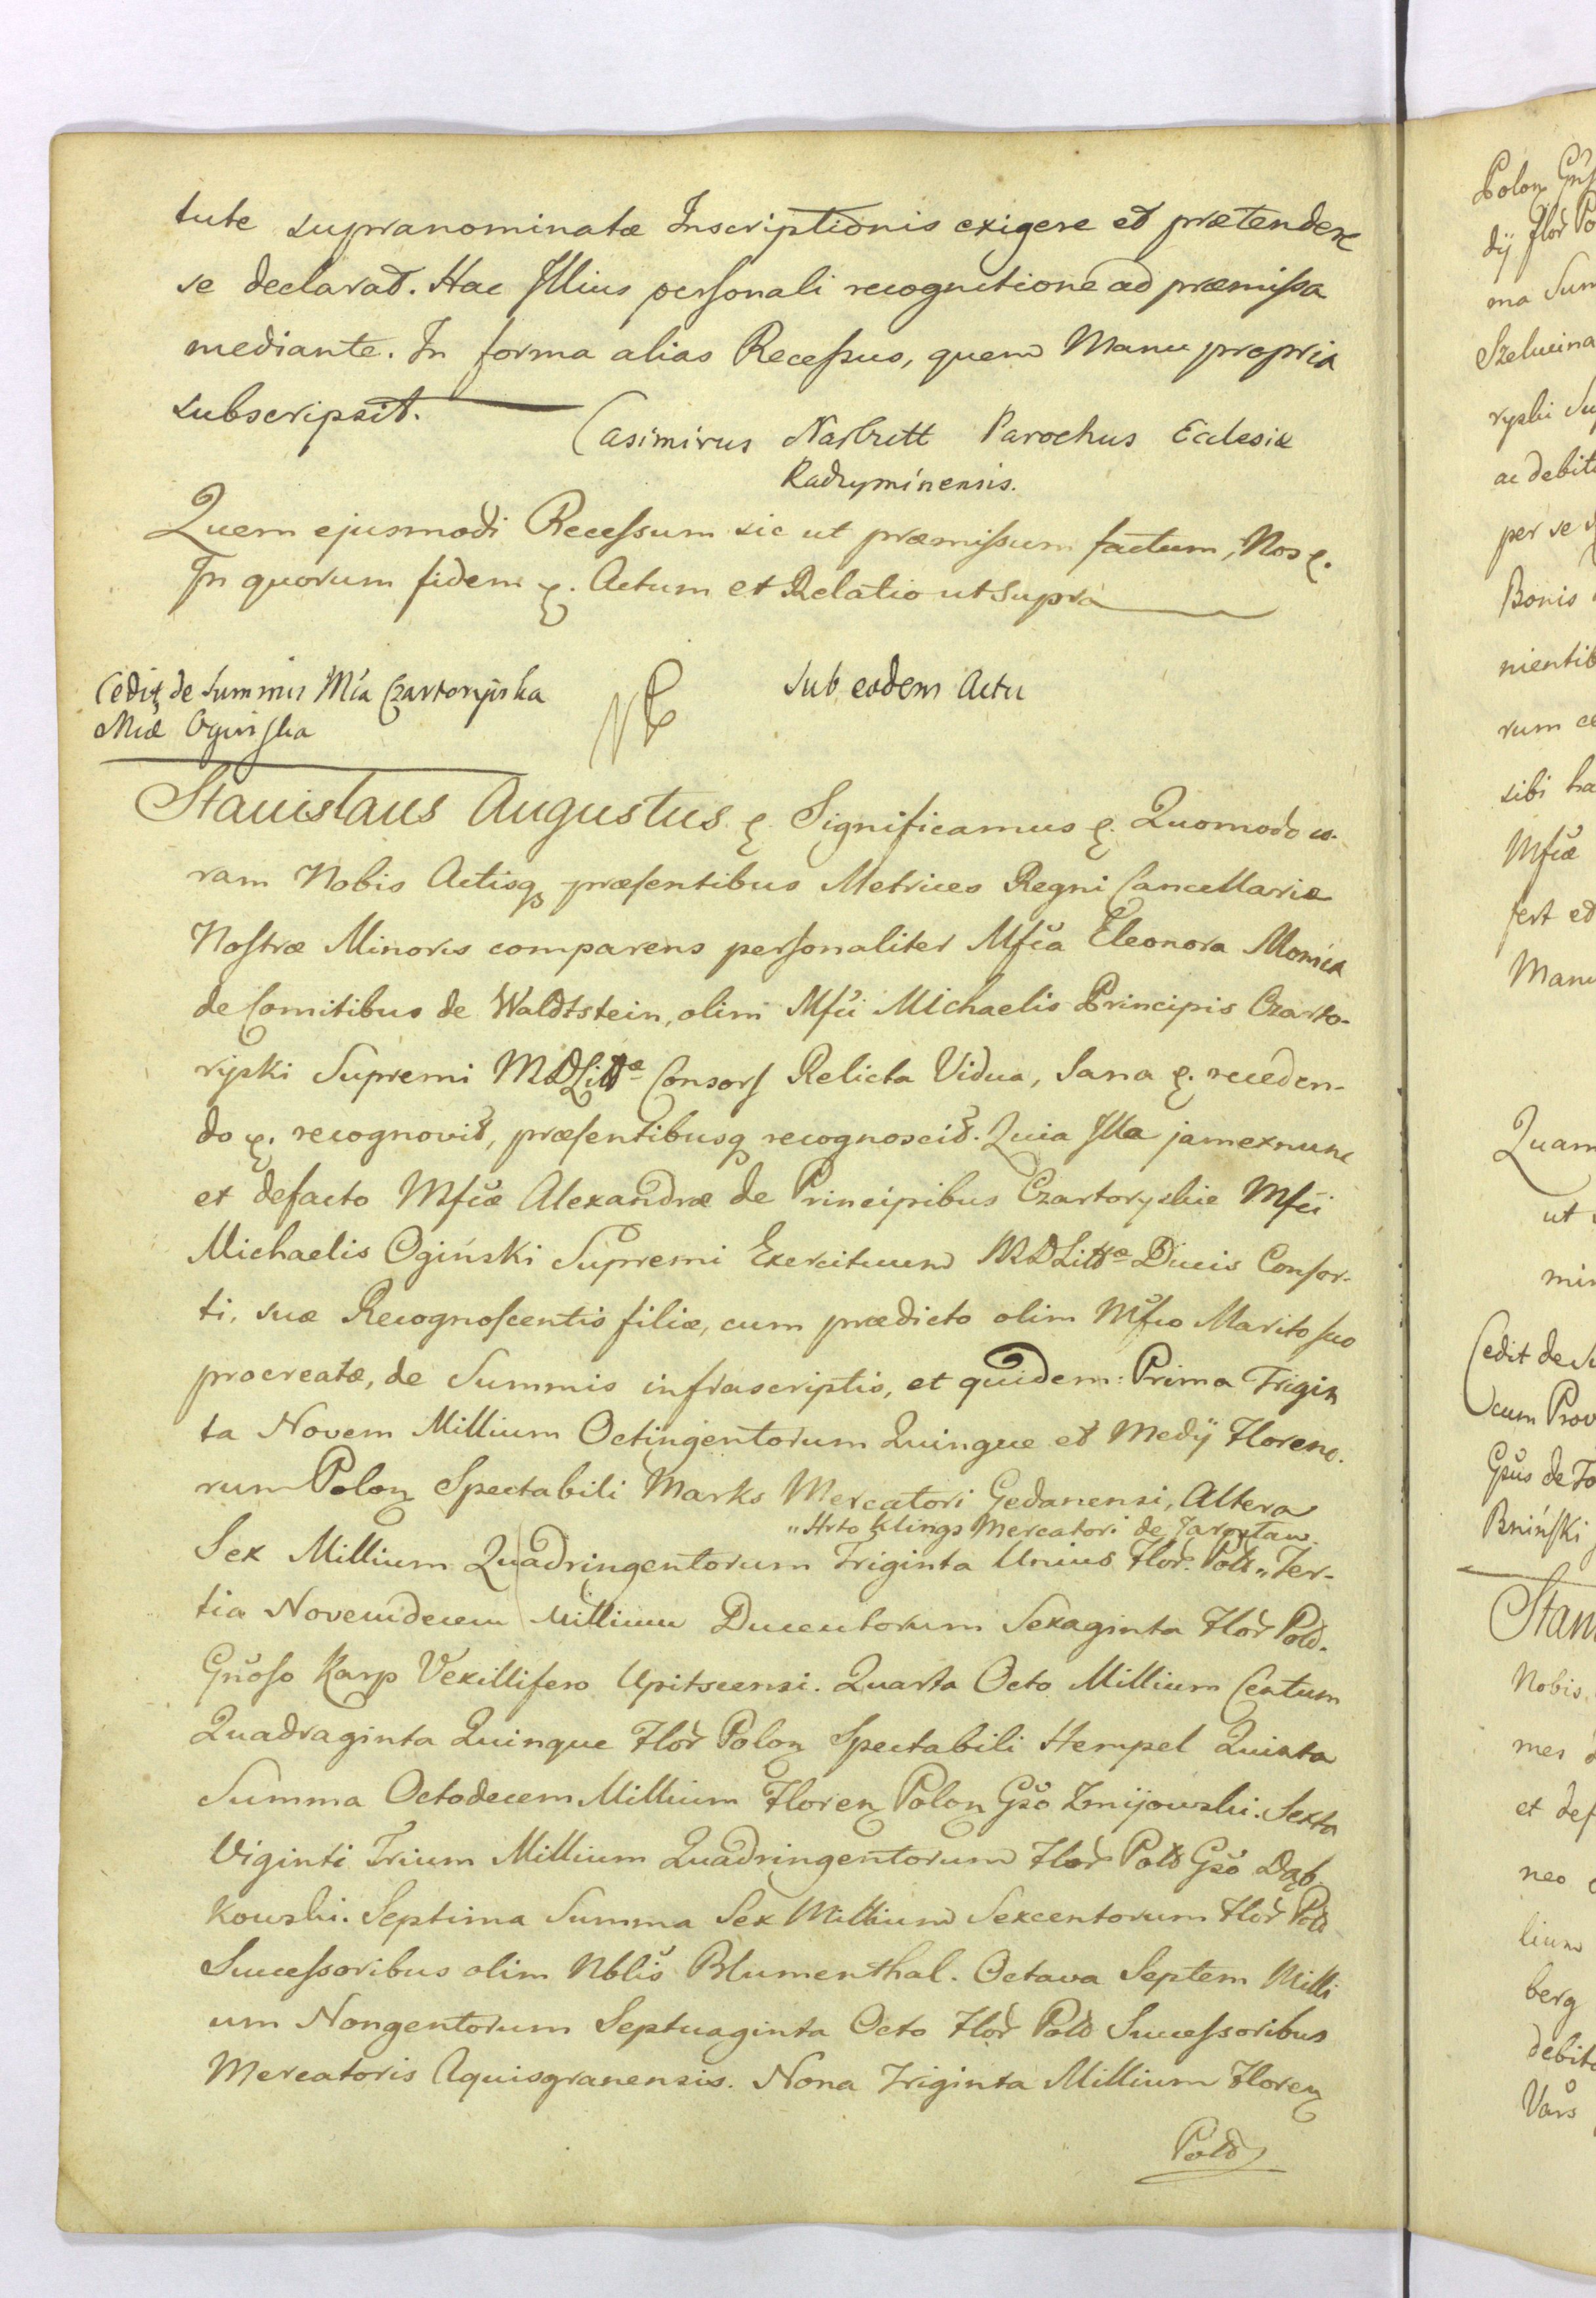 tute supranominatæ Inscriptionis exigere et prætendere
se declarat. Hac Illius personali recognitione ad præmissa
mediante. In forma alias Recessus, quem Manu propria
subscripsit.
Casimirus Narbutt Parochus Ecclesiæ
Radzyminensis.
Quem ejusmodi Recessum sic ut præmissum factum, Nos &.
In quorum fidem &. Actum et Relatio ut supra
Cedit de Summis Mca Czartoryska
Mcæ Ogińska
Sub eodem Actu
Stanislaus Augustus & Significamus &. Quomodo co-
ram Nobis Actisq præsentibus Metrices Regni Cancellariæ
Nostræ Minoris comparens personaliter Mfca Eleonora Monica
de Comitibus de Waldtstein, olim Mfci Michaelis Principis Czarto-
ryski Supremi MDLittæ Consors Relicta Vidua, Sana &. receden-
do &. recognovit, præsentibusq recognoscit. Quia Illa jam exnunc
et defacto Mfcæ Alexandræ de Principibus Czartoryskie Mfci
Michaelis Ogiński Supremi Exercituum MDLittæ Ducis Consor-
ti, suæ Recognoscentis filiæ, cum prædicto olim Mfco Marito suo
procreatæ, de Summis infrascriptis, et quidem: Prima Trigin
ta Novem Millium Octingentorum Quinque et Medÿ Floreno-
rum Polon Spectabili Marks Mercatori Gedanensi, Altera
"Hrto Klings Mercatori de Jarosław
Sex Millium Quadringentorum Triginta Unius Flor. Pol. " Ter-
tia Novemdecem Millium Ducentorum Sexaginta Flor Pol.
Gnoso Karp Vexillifero Upitscensi. Quarta Octo Millium Centum
Quadraginta Quinque Flor Polon Spectabili Hempel Quinta
Summa Octodecem Millium Floren Polon Gso Zmijowski. Sexta
Viginti Trium Millium Quadringentorum Flor Pol Gso Dąb-
kowski. Septima Summa Sex Millium Sexcentorum Flor Pol
Successoribus olim Nblis Blumenthal. Octava Septem Milli
um Nongentorum Septuaginta Octo Flor Pol Successoribus
Mercatoris Aquisgranensis. Nona Triginta Millium Floren
Pol
Polon
dÿ Flor Po
ma Sum
Szeluina
ryski Su
ac debit
per se
Bonis
nientib
rum
sibi ha
Mfcæ
fert et
Manu
Quam
ut
min
Cedit de Su
cum Prov
Gsus de
Bniński
Stan
Nobis
mes
et def
neo
lium
berg
debito
Vars